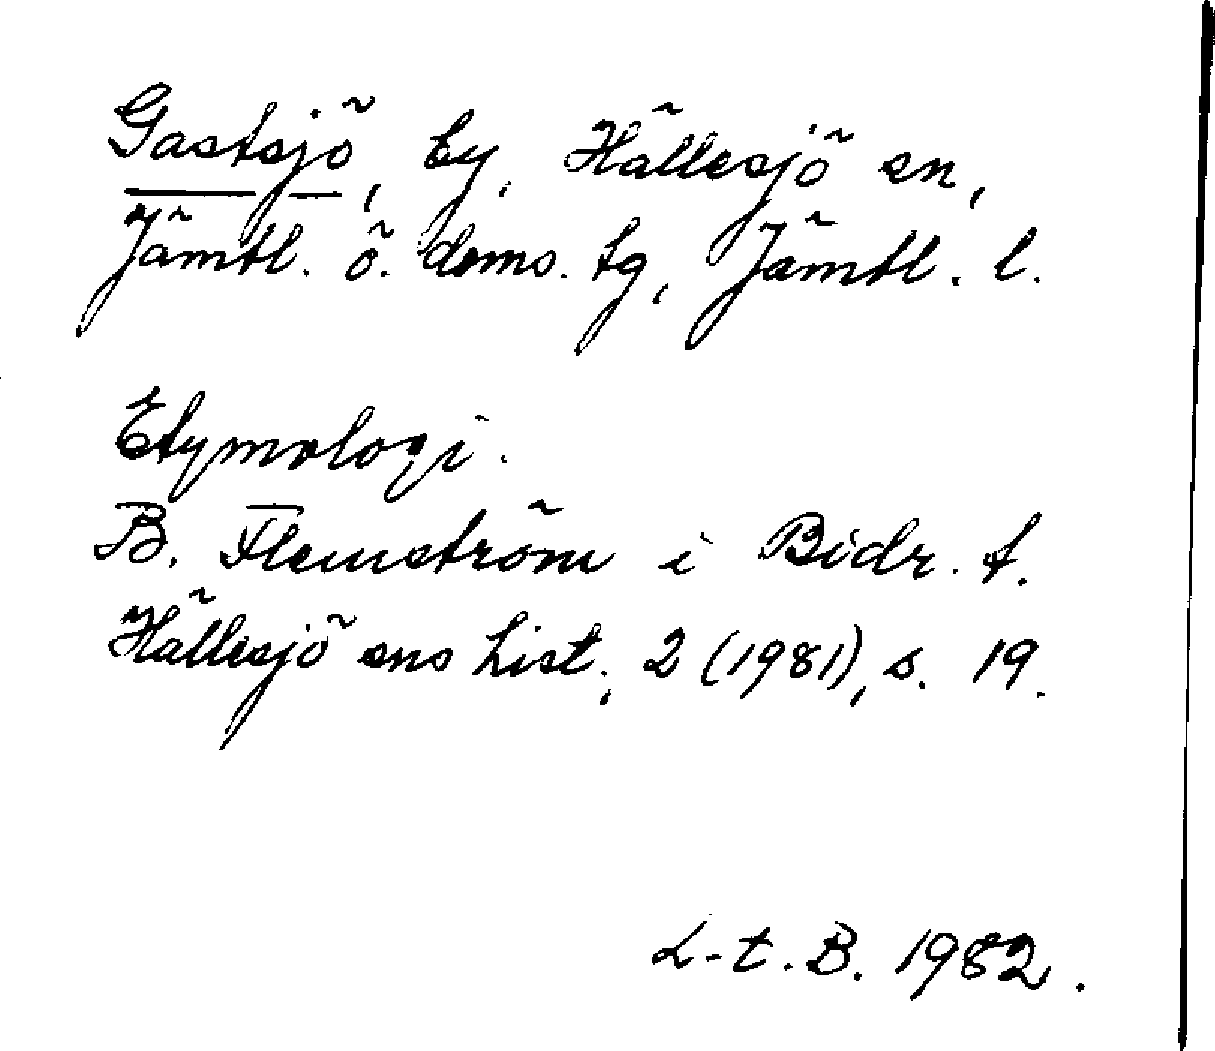 Gastsjö, by, Hällesjö sn,
Jämtl. ö. doms. tg, Jämtl. l.
Etymologi.
B. Flemström i Bidr. t.
Hällesjö sns hist., 2 (1981), s. 19.
L-t. B. 1982.